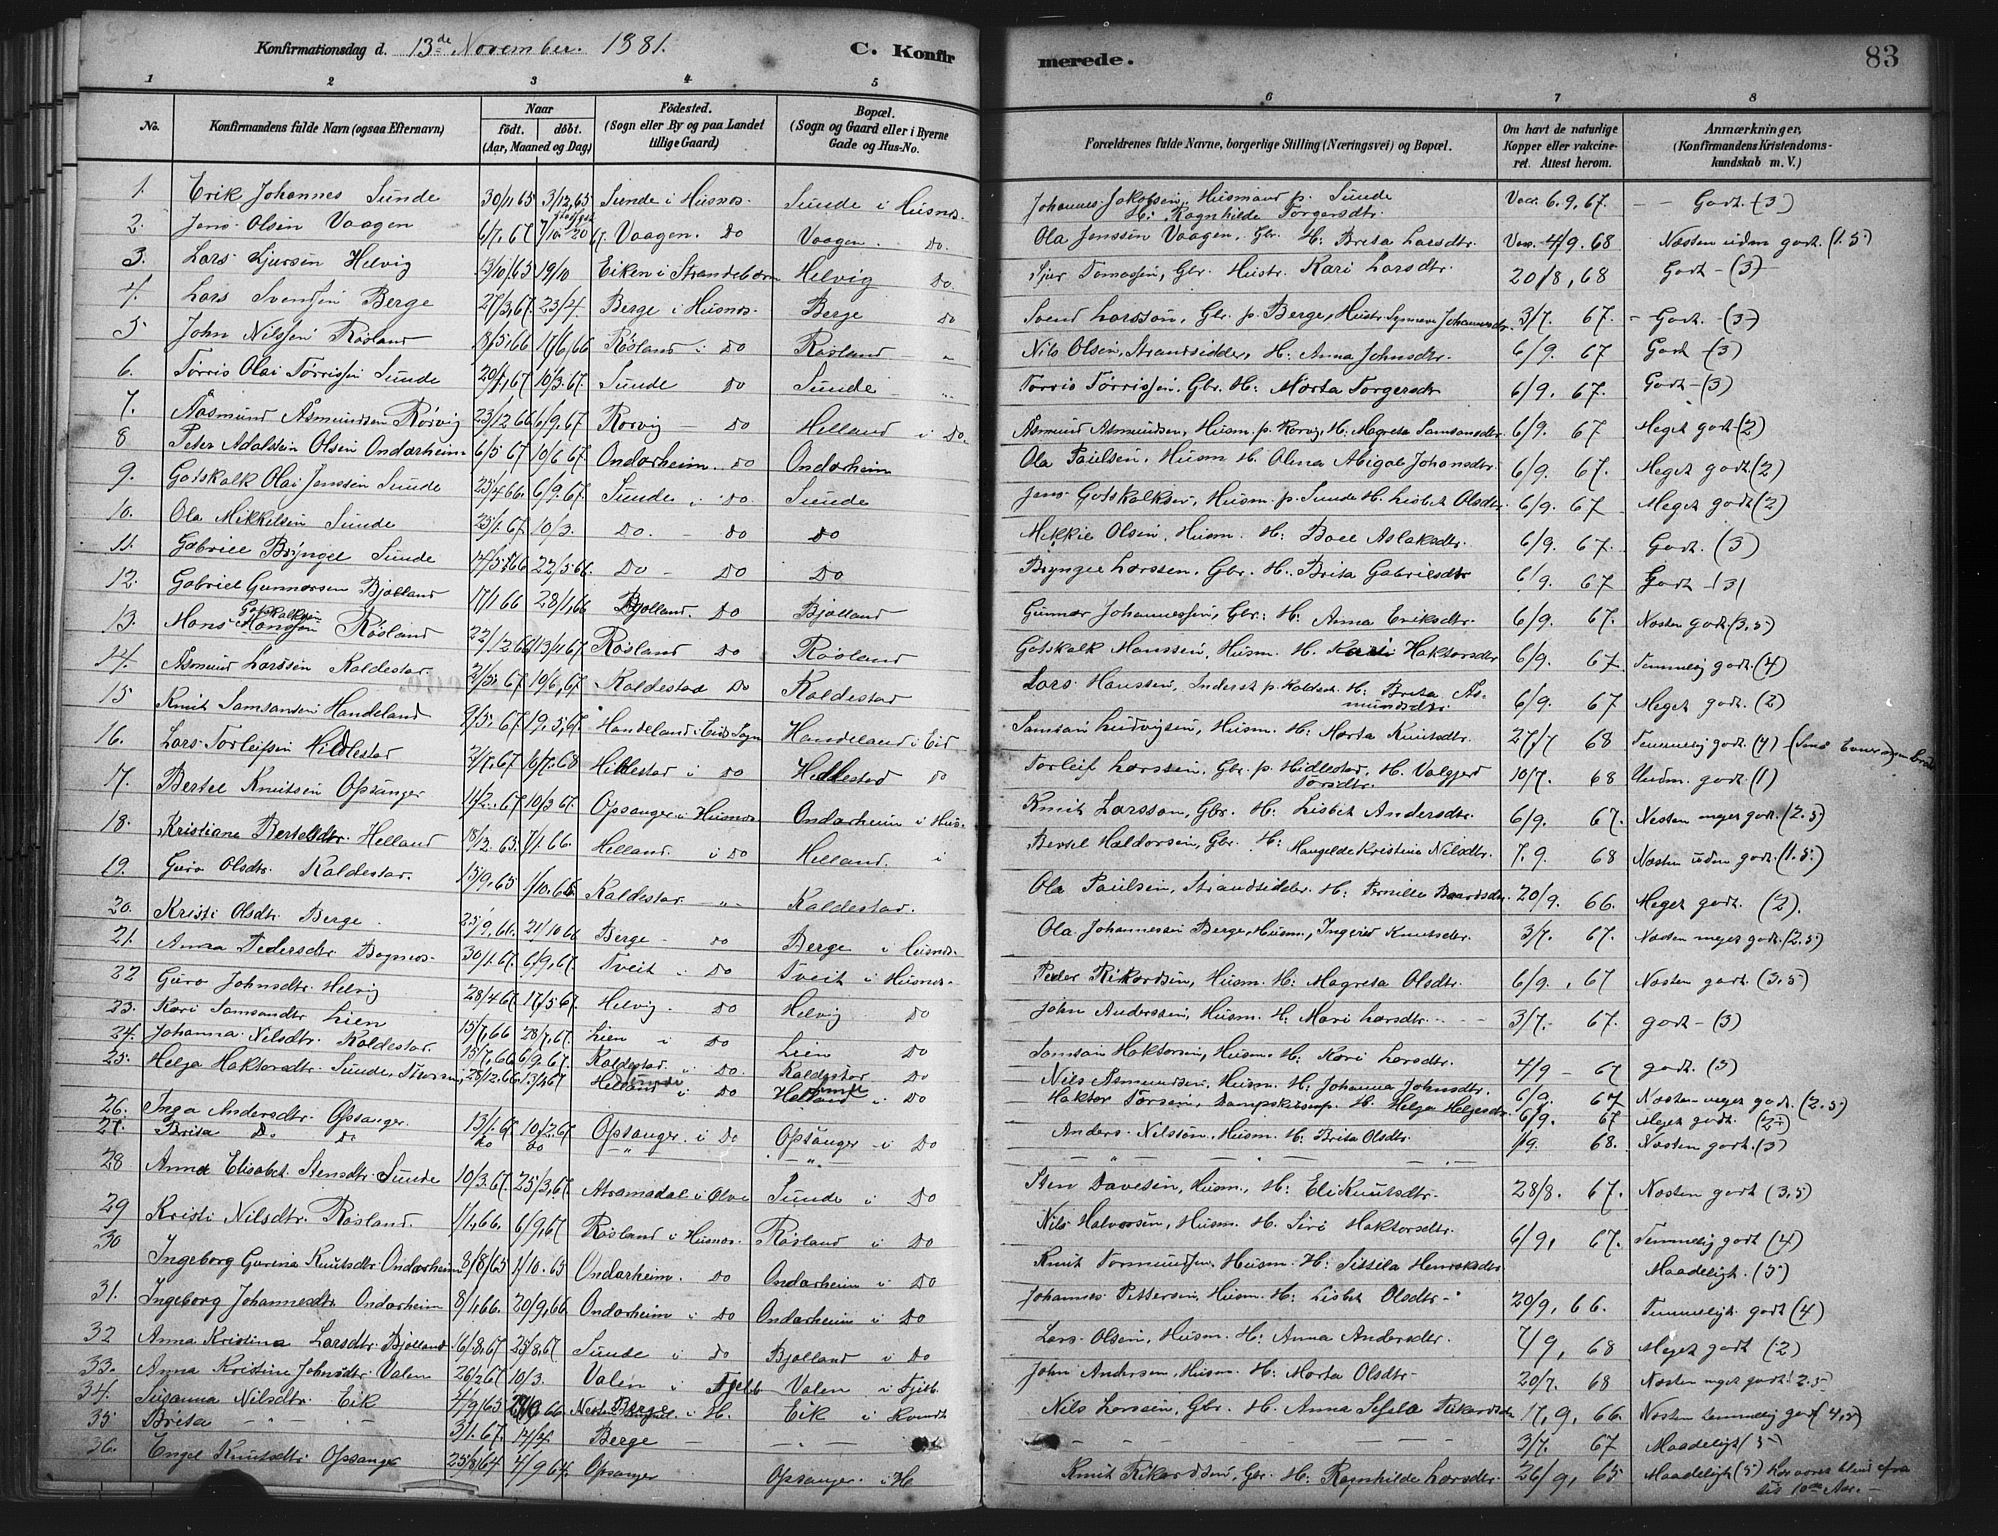 Konfirmationsdag d. 13de November. 1881. C. Konfir merede. 83
1 2 3 4 5 6 7 8
No. Konfirmandens fulde Navn (ogsaa Efternavn) Naar födt. döbt. (Aar, Maaned og Dag) Födested. (Sogn eller By og paa Landet tillige Gaard) Bopæl. (Sogn og Gaard eller i Byerne Gade og Hus-No. Forældrenes fulde Navne, borgerlige Stilling (Næringsvei) og Bopæl. Om havt de naturlige Kopper eller vakcineret. Attest herom. Anmærkninger, (Konfirmandens Kristendomskundskab m. V.)
1. Erik Johannes Sunde 30/1 65 3/12,65 Sunde i Husnes. Sunde i Husnes. Johannes Jakobsen, Husmand p. Sunde H: Ragnhilde Torgersdtr. Vacc. 6.9.67. Godt (3)
2. Jens Olsen Vaagen 6/7.67 Vaagen. Do Vaagen. Do. Ola Jenssen Vaagen, Gbr. H: Brita Larsdtr. 4/9.68 Næsten uden godt (1.5)
3. Lars Sjursen Helvig 3/10/65 19/10 Eiken i Strandebarm Helvig Do. Sjur Tomassen, Gbr. Hustr. Kari Larsdtr. 20/8,68 Godt (3)
4. Lars Svensen Berge 27/3,67. 23/4. Berge i Husnes. Berge Do Svend Larsson, Gbr. p. Berge, Hustr. Synneve Johannesdtr. 3/7. 67. Godt. (3)
5 John Nilssen Røsland 18/5,66 17/6,66 Røsland i Do Røsland " Nils Olsen, Strandsidder, H: Anna Johnsdtr. 6/9. 67 Godt (3)
6. Torris Olai Torrissen Sunde 20/1,67 10/3.67. Sunde Do Sunde " Torris Torrissen, Gbr. H: Marta Torgersdtr 6/9. 67. Godt (3)
7. Aasmund Asmundsen Rørvig 23/12 66 6/9.67. Rørvig - Do Helland i Do. Asmund Asmundsen, Husm. p. Rørvig, H: Magreta Samsonsdtr. 6/9. 67 Meget godt (2)
8 Peter Adalstein Olsen Ondarheim 6/5 67 10/6 67. Ondarheim. Do Ondarheim Ola Paulsen, Husm H. Olina Abigal Johansdtr. 6/9 67. Meget godt (2)
9. Gotskalk Olai Jenssen Sunde 25/4 66. 6/9.67. Sunde i Do. Sunde Jens Gotskalksen, Husm. p. Sunde H. Lisbet Olsdtr. 6/9. 67. Meget godt (2)
10. Ola Mikkelsen Sunde 25/1.67. 10/3. Do. - Do Do Mikkel Olsen, Husm. H: Boel Aslaksdtr. 6/9. 67. Godt. (3)
11. Gabriel Bryngel Sunde 14/5.66 22/5.66. Do - Do Do Brynjel Larssen, Gbr. H. Brita Gabrielsdtr 6/9. 67 Godt (3)
12. Gabriel Gunnarsen Bjølland 17/1 66 28/1,66 Bjølland. Do Bjølland Gunnar Johannessen, Gbr. H: Anna Eriksdtr. 6/9. 67. Næsten godt (3,5)
13. Mons Gotskalksen Røsland 22/12 66 13/1,67 Røsland Do Røsland Gotskalk Monssen, Husm. H. Kari Haktorsdtr 6/9. 67. Temmelig godt. (4)
14. Asmund Larssen Kaldestad. 2/5. 67 19/6,67 Kaldestad Do Kaldestad Lars Hanssen, Inderst p. Kaldest. H: Brita Asmundsdtr. 6/9. 67 Meget godt. (2)
15 Knut Samsonsen Handeland 9/5. 67 19,5,67. Handeland i Eids Sogn Handeland i Eid Samson Ludvigsen, Husm. H: Marta Knutsdtr. 27/7 68 Temmelig godt. (4)
16. Lars Torleifsen Hidlestad 2/7,67 16/7.68 Hidlestad i Do Hidlestad Do Torleif Larssen, Gbr. p. Hidlestad, H. Valgjerd Torsdtr. 10/7. 68 Udm. godt. (1)
17. Bertel Knutsen Opsanger 11/2. 67 10/3 67. Opsanger i Husnes Ondarheim i Hus- Knut Larsson, Gbr. H: Lisbet Andersdtr. 6/9. 67. Næsten meget godt. (2.5)
18. Kristiane Bertelsdtr. Helland 18/12.65. 7/1.66. Helland. i Do Helland. i Bertel Haldorsen, Gbr. H: Kristine Nilsdtr. 7.9. 68 Næsten uden godt. (1.5.)
19. Guro Olsdtr. Kaldestad. 15/9,65 1/10.66 Kaldestad - " - Kaldestad. Ola Paulsen, Strandsidder. H. Pernille Baardsdtr 20/9. 66. Meget godt. (2).
20. Kristi Olsdtr. Berge. 25/9,66. 21/10 66 Berge - Do Berge i Husnes. Ola Johannessen Berge, Husm., Ingerid Knutsdtr. 3/7. 67. Næsten meget godt. (2.5)
21. Anna Pedersdtr. Bognes. 30/1.67. 6/9,67. Tveit i Do Tveit i Husnes. Peder Rikardsen, Husm. H: Magreta Olsdtr. 6/9, 67 Næsten godt. (3,5)
22 Guro Johnsdtr. Helvig 28/4 67 17/5 67 Helvig - Do Helvig Do John Anderssen, Husm. H. Mari Larsdtr. 3/7. 67. godt (3)
23. Kari Samsondtr. Lien 15/7,66 28/7,67. Lien i Do Lien Do Samson Haktorsen, Husm. H: Kari Larsdtr. 4/9 - 67 godt. (3)
24. Johanna Nilsdtr. Kaldestad. 15/7,66 6/9.67. Kaldestad i Do. Kaldestad Do Nils Asmundsen, Husm. H: Johanna Johnsdtr. 6/9. 67 Næsten meget godt. (2.5)
25. Helga Haktorsdtr. Sunde, 28/12.66. 13/1,67 Sunde i Do Sunde i Do Haktor Torsen, H. Helga Helgesdtr 6/9. 67 Meget godt. (2)
26. Inga Andersdtr. Opsanger. 13/1.67. 10/2.67 Opsanger. i Do Opsanger - i Do Anders Nilsøn, Husm. H. Brita Olsdtr. 68. Næsten godt. (3)
27. Brita Do. Do Do Do - " - - " -
28 Anna Elisabet Stensdtr. Sunde 10/3.67. 25/3,67. Atramadal i Olve Sunde i Do Sten Davesen, Husm., H: Eli Knutsdtr. 28/8. 67. Næsten godt (3,5)
29 Kristi Nilsdtr. Røsland. 1/1,66. 6/9,67 Røsland i Husnes. Røsland i Do Nils Halvorsen, Husm. H. Siri Haktorsdtr. 6/9, 67. Temmelig godt (4)
30 Ingeborg Gurina Knutsdtr. Ondarheim 8/8/65 1/10.65 Ondarheim. Do Ondarheim i Do Knut Tormundsen, Husm. H: Sissila Henriksdtr Maadeligt. (5)
31. Ingeborg Johannesdtr. Ondarheim 8/1,66. 20/9,66 Ondarheim i Do Ondarheim i Do Johannes Pettersen, Husm. H: Lisbet Olsdtr 20/9, 66. Temmeligt godt (4)
32 Anna Kristina Larsdtr Bjølland 16/8,67 25/8,67 Sunde i Do Bjølland i Do Lars Olsen, Husm. H: Anna Andersdtr. 7/9, 68 Meget godt (2)
33. Anna Kristine Johnsdtr. Valen 26/2.67 10/3. Valen i Fjelb. Valen i Fjelb. John Andersen, Husm. H. Marta Olsdtr 20/7. 68 Næsten meget godt. 2.5
34. Susanna Nilsdtr. Eik 4/9/65 Berge i H. Eik i Kvindh. Nils Larssen, Gbr. H. Anna Rikardsdtr 17,9, 66. Næsten temmelig godt (4,5)
35 Brita - " - - " - 3/1.67. 14/4 Berge - - " - - " - 3/7. 67 Maadeligt (5)
36. Engel Knutsdtr. Opsanger 25/8/64 4/9 64. Opsanger Opsanger i H. Knut Rikardsen, Gbr. H: Ragnhilde Larsdtr. 26/9, 65 Maadeligt (5) Har været blind fra sit 10de Aar.